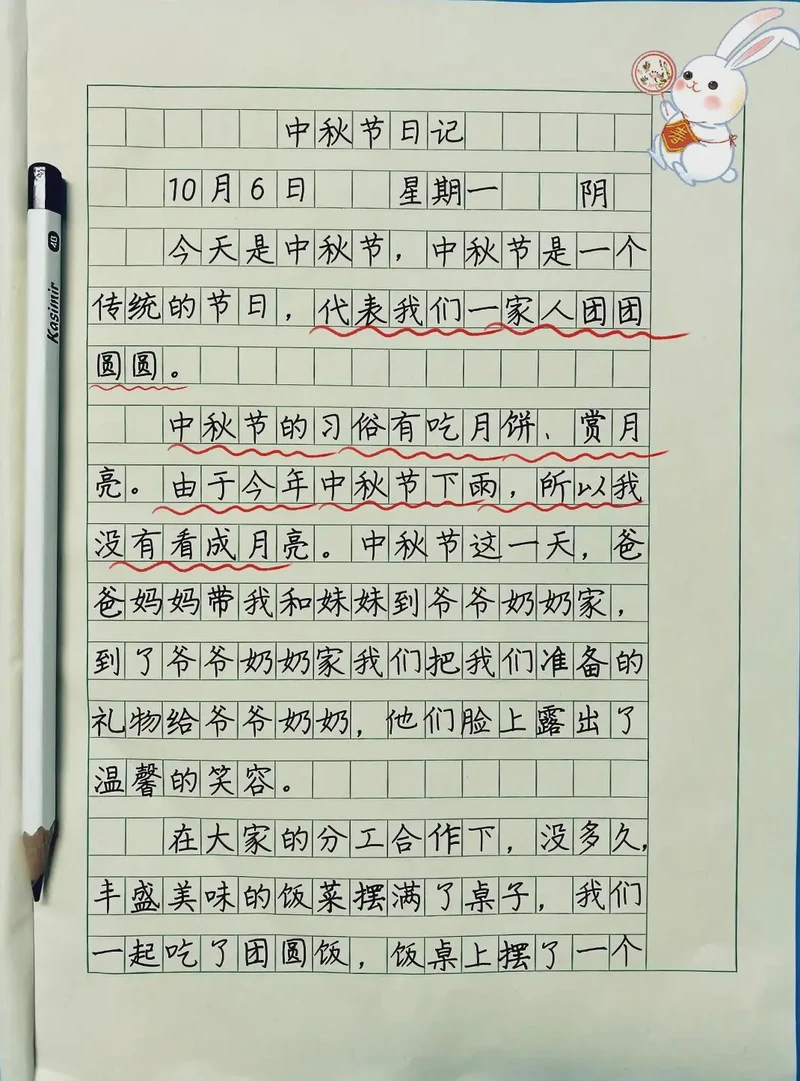 中秋节日记
10月6日 星期一 阴
今天是中秋节，中秋节是一个
传统的节日，代表我们一家人团团
圆圆。
中秋节的习俗有吃月饼、赏月
亮。由于今年中秋节下雨，所以我
没有看成月亮。中秋节这一天，爸
爸妈妈带我和妹妹到爷爷奶奶家，
到了爷爷奶奶家我们把我们准备的
礼物给爷爷奶奶，他们脸上露出了
温馨的笑容。
在大家的分工合作下，没多久，
丰盛美味的饭菜摆满了桌子，我们
一起吃了团圆饭，饭桌上摆了一个
Kasimir